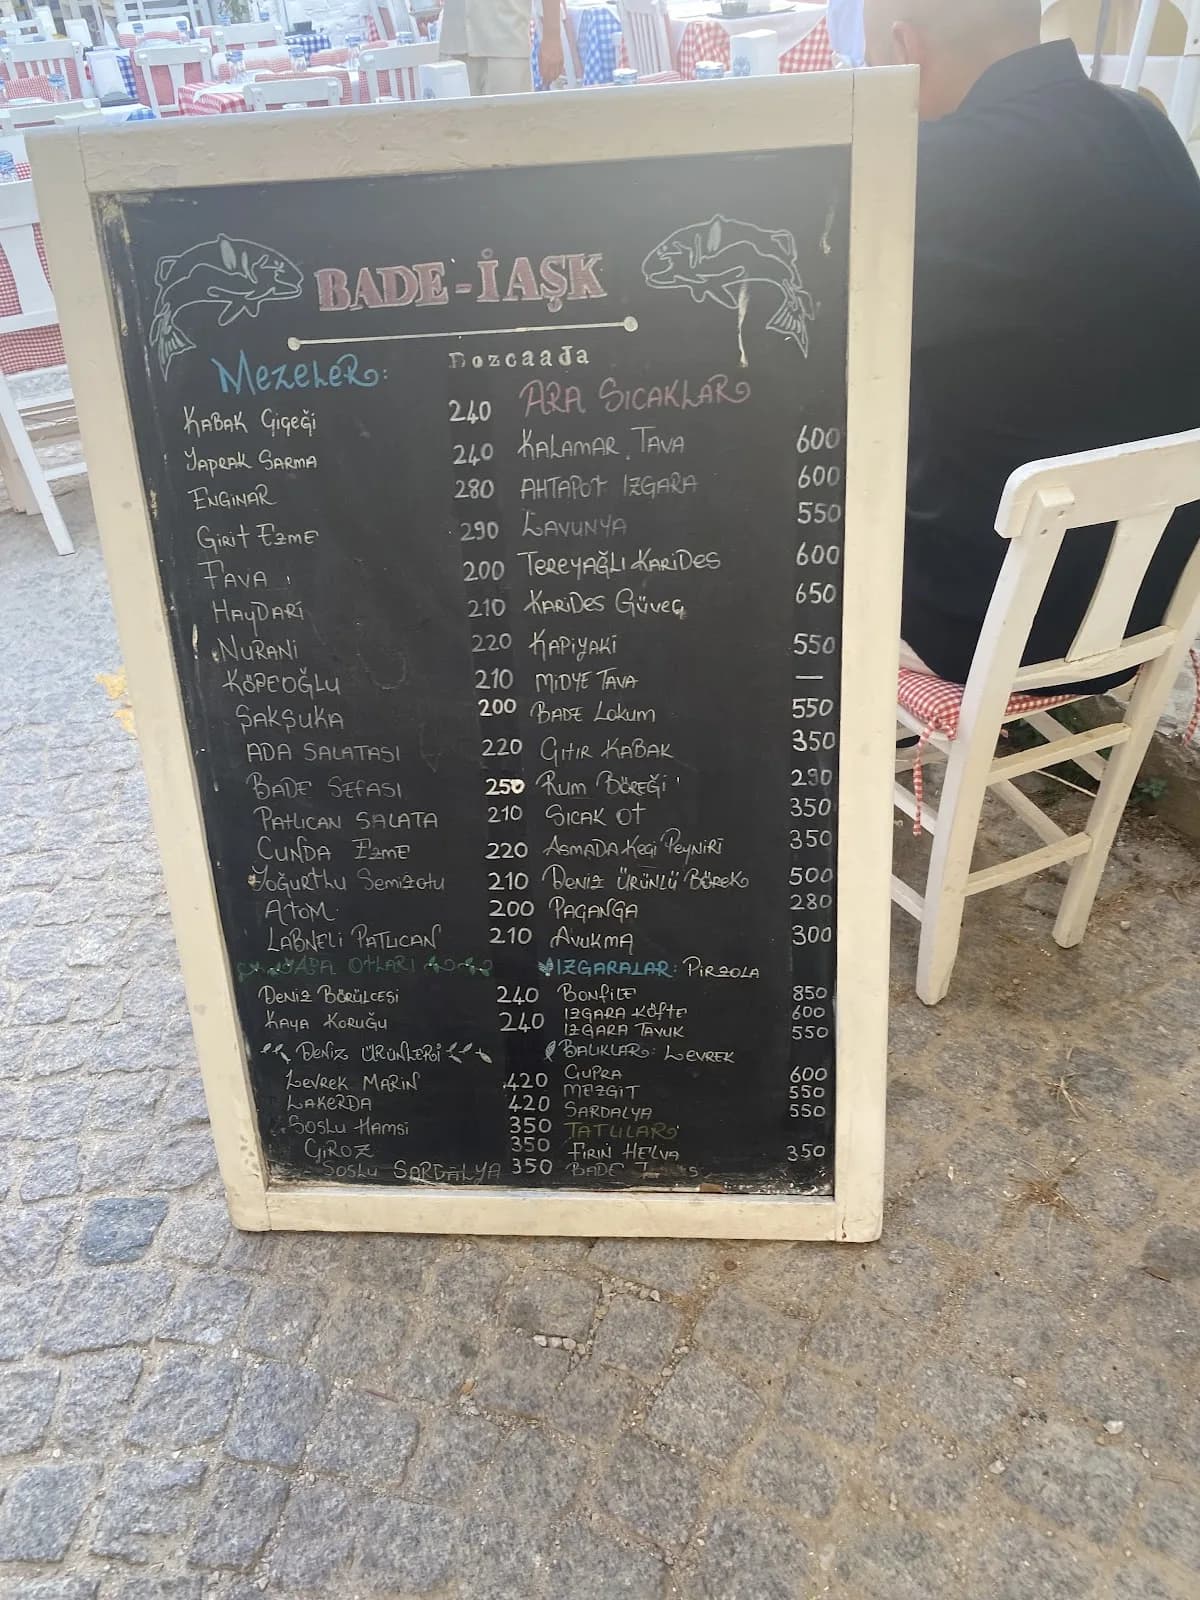 BADE-İAŞK
Bozcaada
Mezeler:
Kabak Çiçeği 240
Yaprak Sarma 240
Enginar 280
Girit Ezme 290
Fava 200
Haydari 210
Nurani 220
Köpeoğlu 210
Şakşuka 200
Ada Salatası 220
Bade Sefası 250
Patlıcan Salata 210
Cunda Ezme 220
Yoğurtlu Semizotu 210
Atom 200
Labneli Patlıcan 210
Otları
Deniz Börülcesi 240
Kaya Koruğu 240
Deniz Ürünleri
Levrek Marin 420
Lakerda 420
Soslu Hamsi 350
Çiroz 350
Soslu Sardalya 350
Ara Sıcaklar
Kalamar Tava 600
Ahtapot Izgara 600
Lavunya 550
Tereyağlı Karides 600
Karides Güveç 650
Kapiyaki 550
Midye Tava —
Bade Lokum 550
Çıtır Kabak 350
Rum Böreği 290
Sıcak Ot 350
Asmada Keçi Peyniri 350
Deniz Ürünlü Börek 500
Paçanga 280
Avukma 300
Izgaralar: Pirzola
Bonfile 850
Izgara Köfte 600
Izgara Tavuk 550
Balıklar: Levrek
Çupra 600
Mezgit 550
Sardalya 550
Tatlılar
Fırın Helva 350
Bade